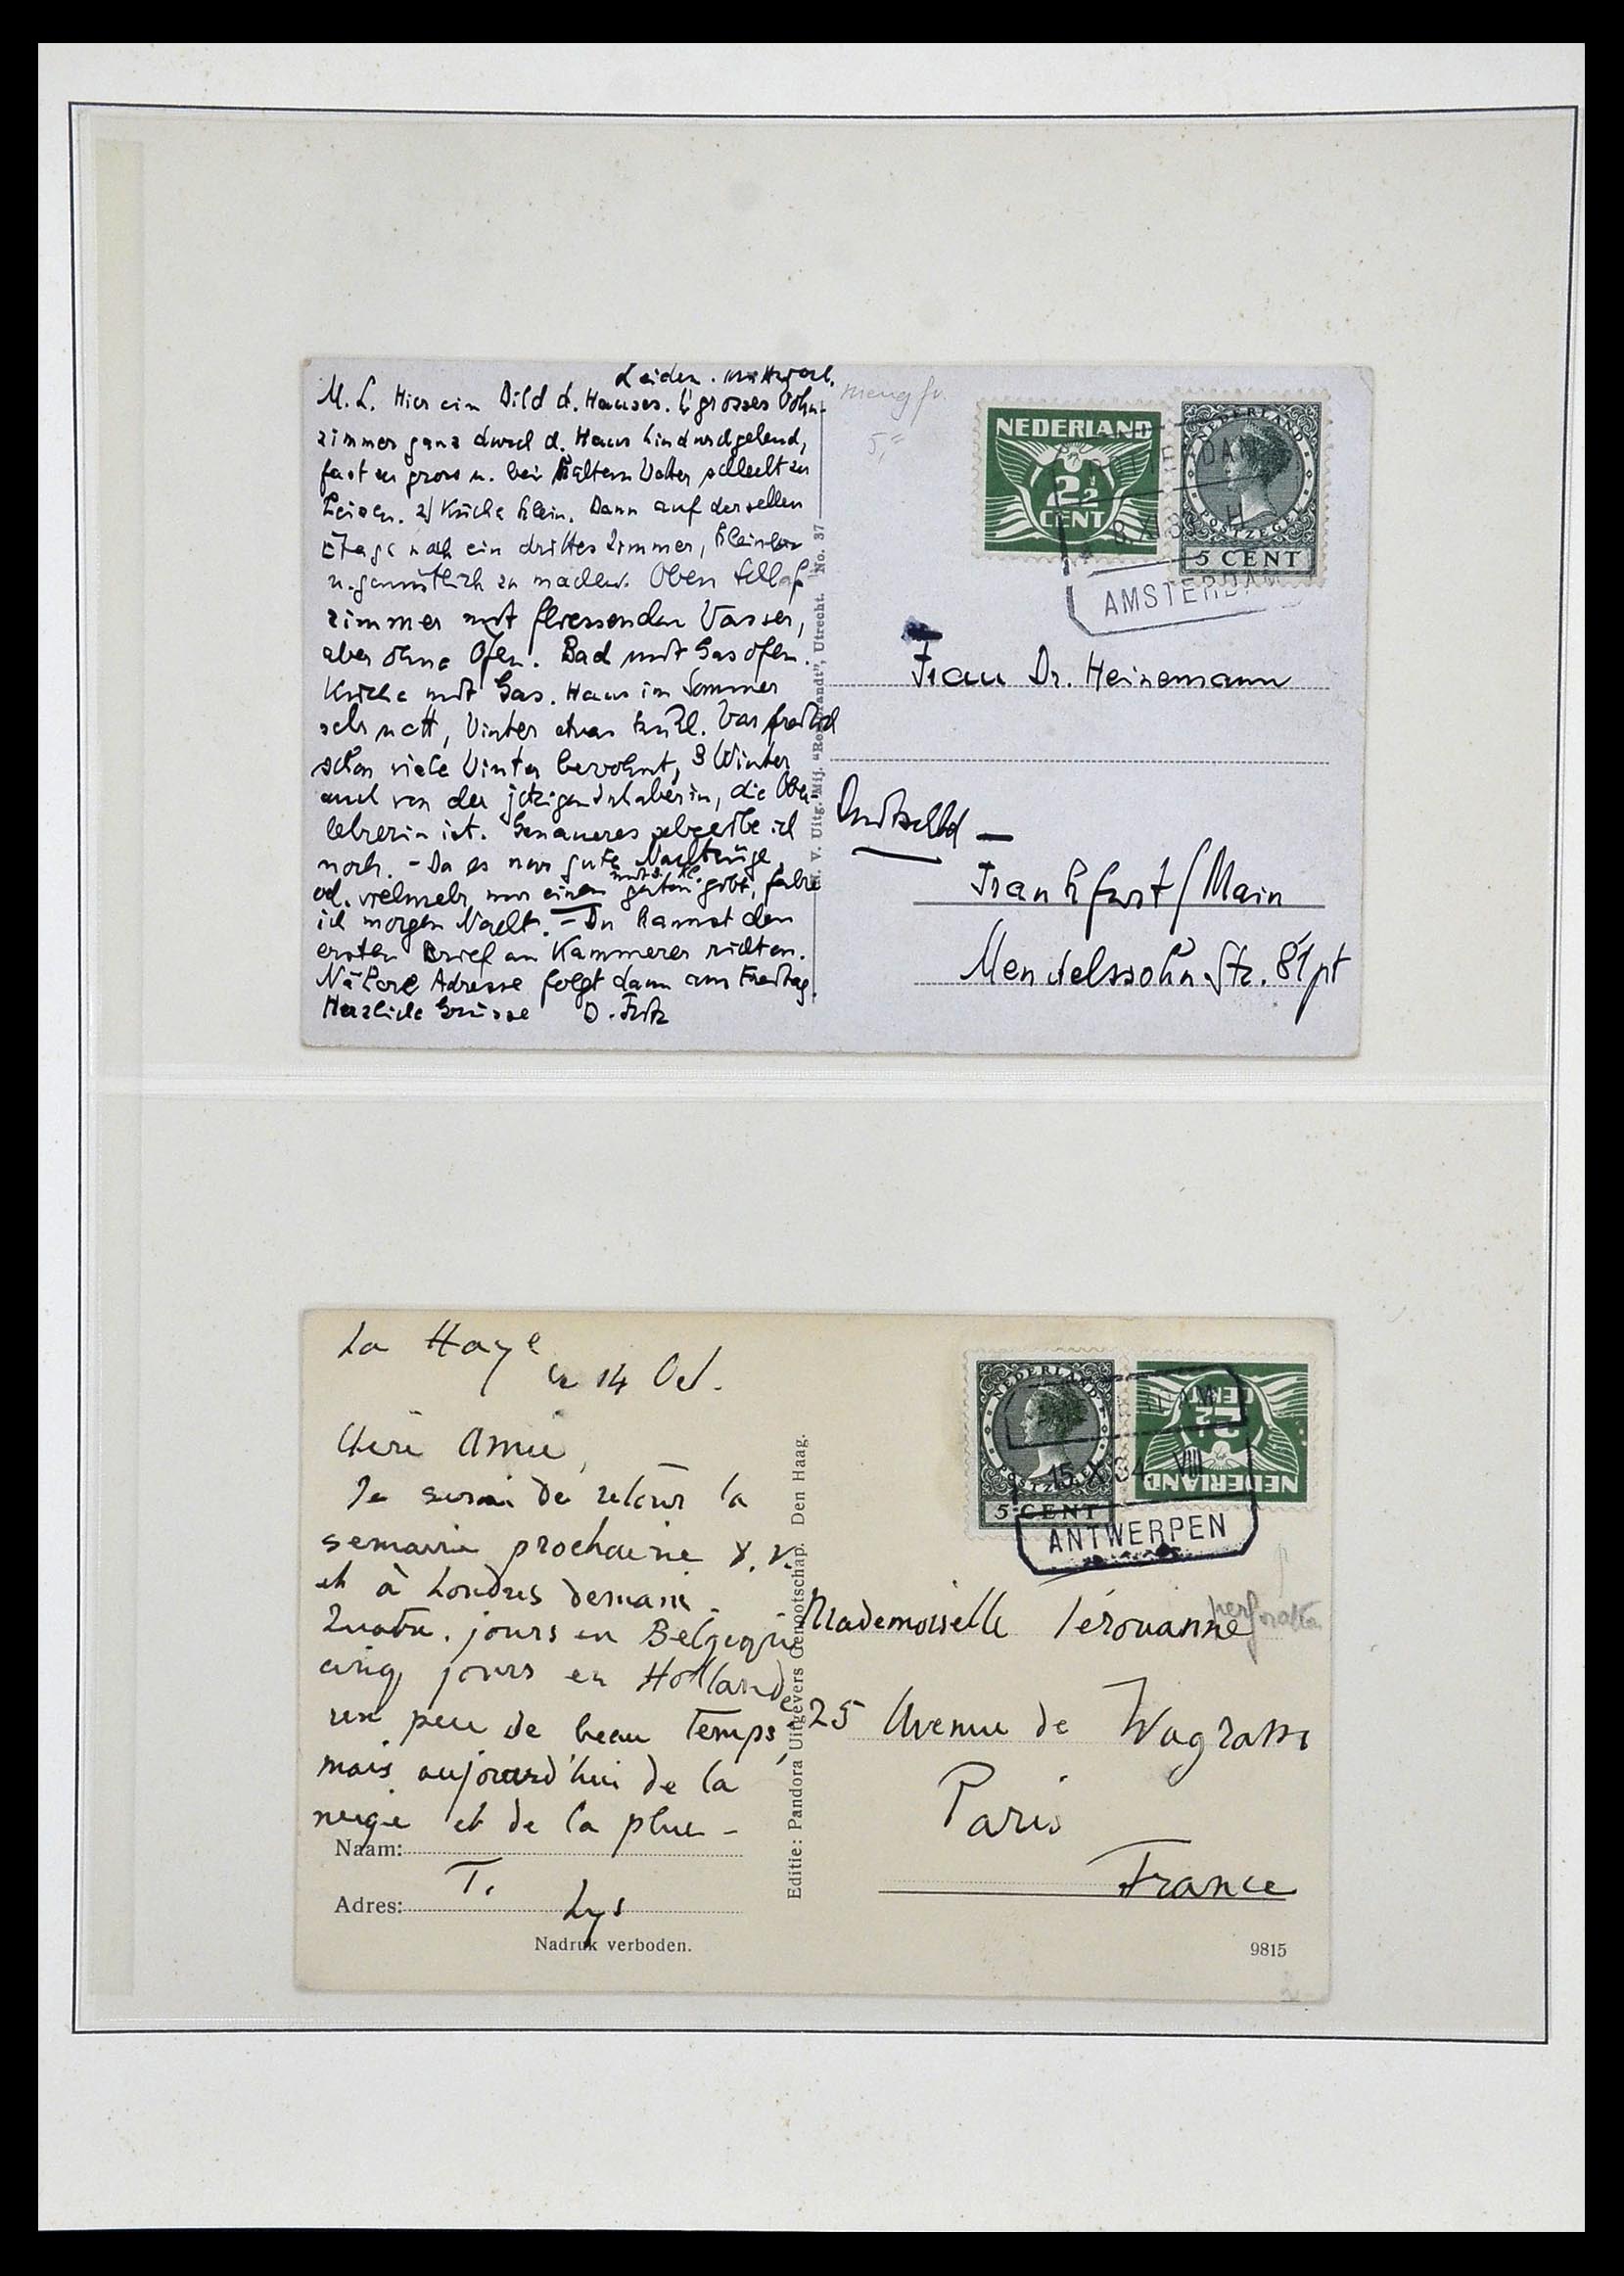 Leiden. Mittwoch.
M. L. Hier ein Bild d. Hauses. 1) grosses Wohn-
zimmer ganz durch d. Haus hindurchgehend,
fast zu gross u. bei kaltem Wetter schlecht zu
heizen. 2) Küche klein. Dann auf derselben
Etage noch ein drittes Zimmer, kleiner
u. gemütlich zu machen. Oben Schlaf
zimmer mit fliessendem Wasser,
aber ohne Ofen. Bad mit Gasofen.
Küche mit Gas. Haus im Sommer
sehr nett, Winter etwas kühl. War freilich
schon viele Winter bewohnt, 3 Winter
auch von der jetzigen Inhaberin, die Ober-
lehrerin ist. Genaueres schreibe ich
noch. - Da es nur gute Nachtzüge,
od. vielmehr nur einen guten gibt, fahre
ich morgen Nacht. - Du kannst den
ersten Brief an Kammerer richten.
Nähere Adresse folgt dann am Freitag.
Herzliche Grüsse D. Fritz
N. V. Uitg. Mij. "Rembrandt", Utrecht. No. 37
mengfr.
5,=
NEDERLAND
2½
CENT
NEDERLAND
POSTZEGEL
5 CENT
AMSTERDAM
Frau Dr. Heinemann
Deutschld —
Frankfurt/Main
Mendelssohn Str. 81 pt
La Haye
le 14 Oct.
Chère Amie,
Je serai de retour la
semaine prochaine
et à Londres demain.
Quatre jours en Belgique
cinq jours en Hollande
un peu de beau temps,
mais aujourd'hui de la
neige et de la pluie -
Naam:
T. Lys
Adres:
Nadruk verboden.
Editie: Pandora Uitgevers Genootschap. Den Haag.
NEDERLAND
POSTZEGEL
5 CENT
NEDERLAND
2½
CENT
15.X.34. VIII
ANTWERPEN
perforatie
Mademoiselle Térouanne
25 Avenue de Wagram
Paris
France
9815